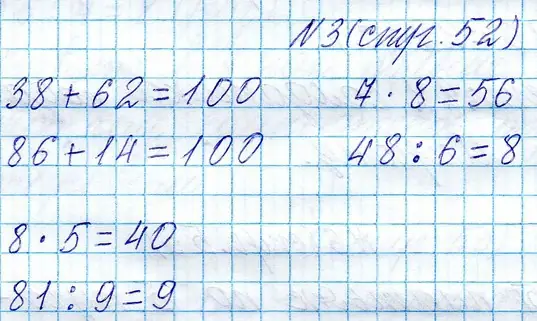 №3 (стр. 52)
38 + 62 = 100
7 · 8 = 56
86 + 14 = 100
48 : 6 = 8
8 · 5 = 40
81 : 9 = 9